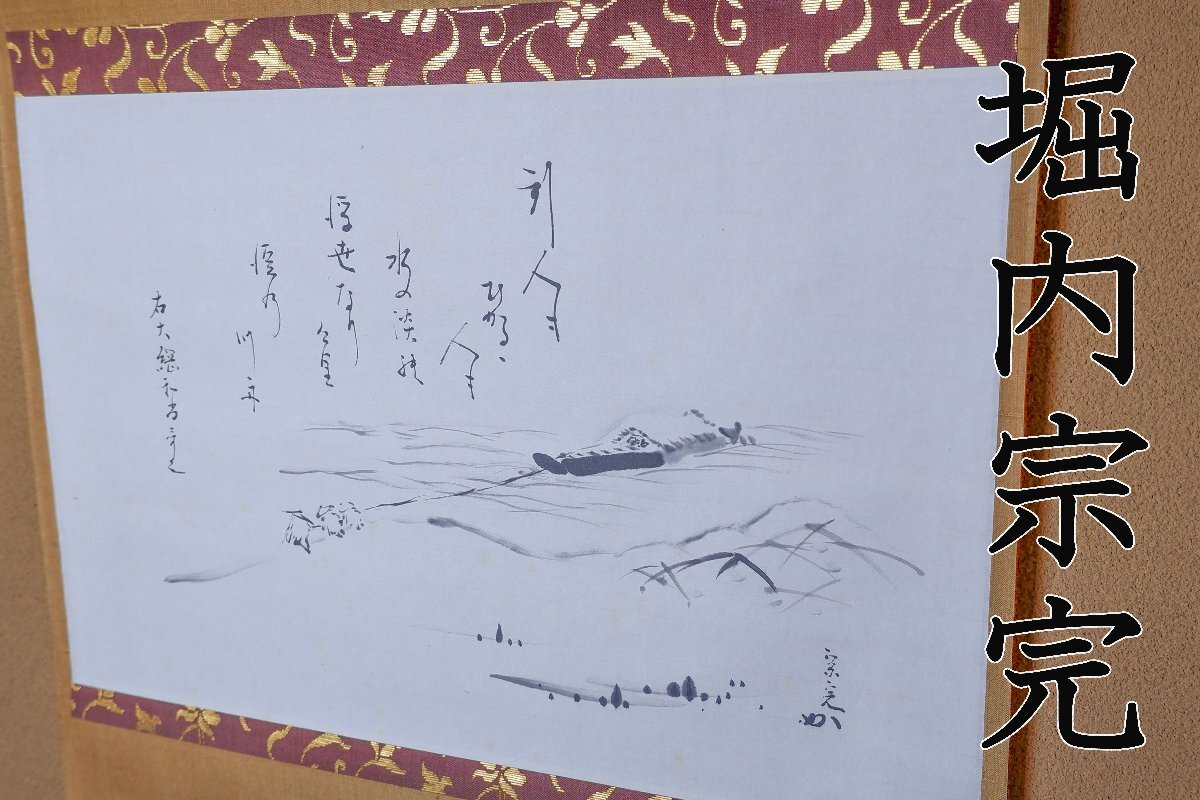 堀内宗完
引人も
ひかるゝ
人も
水の淡能
浮世なり
个里
淀乃
川舟
右大綱和尚
宗完